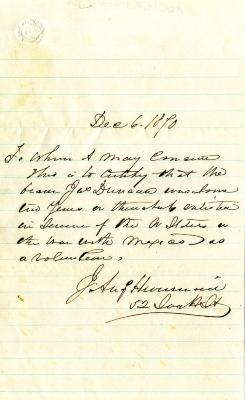 Dec 6. 1870
To Whom It May Concern
This is to Certify that the
bearer Jas Duncan was born
two years or thereabouts enlisted
in Service of the U States in
the War with Mexico as
a volunteer.
J. Aug
52 St